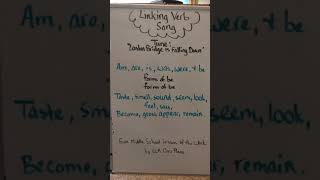 Linking Verb
Song
Tune:
"London Bridge is Falling Down"
Am, are, is, was, were, + be
forms of be
forms of be
Taste, smell, sound, seem, look,
feel,
Become, grow, appear, remain.
From Middle School
by